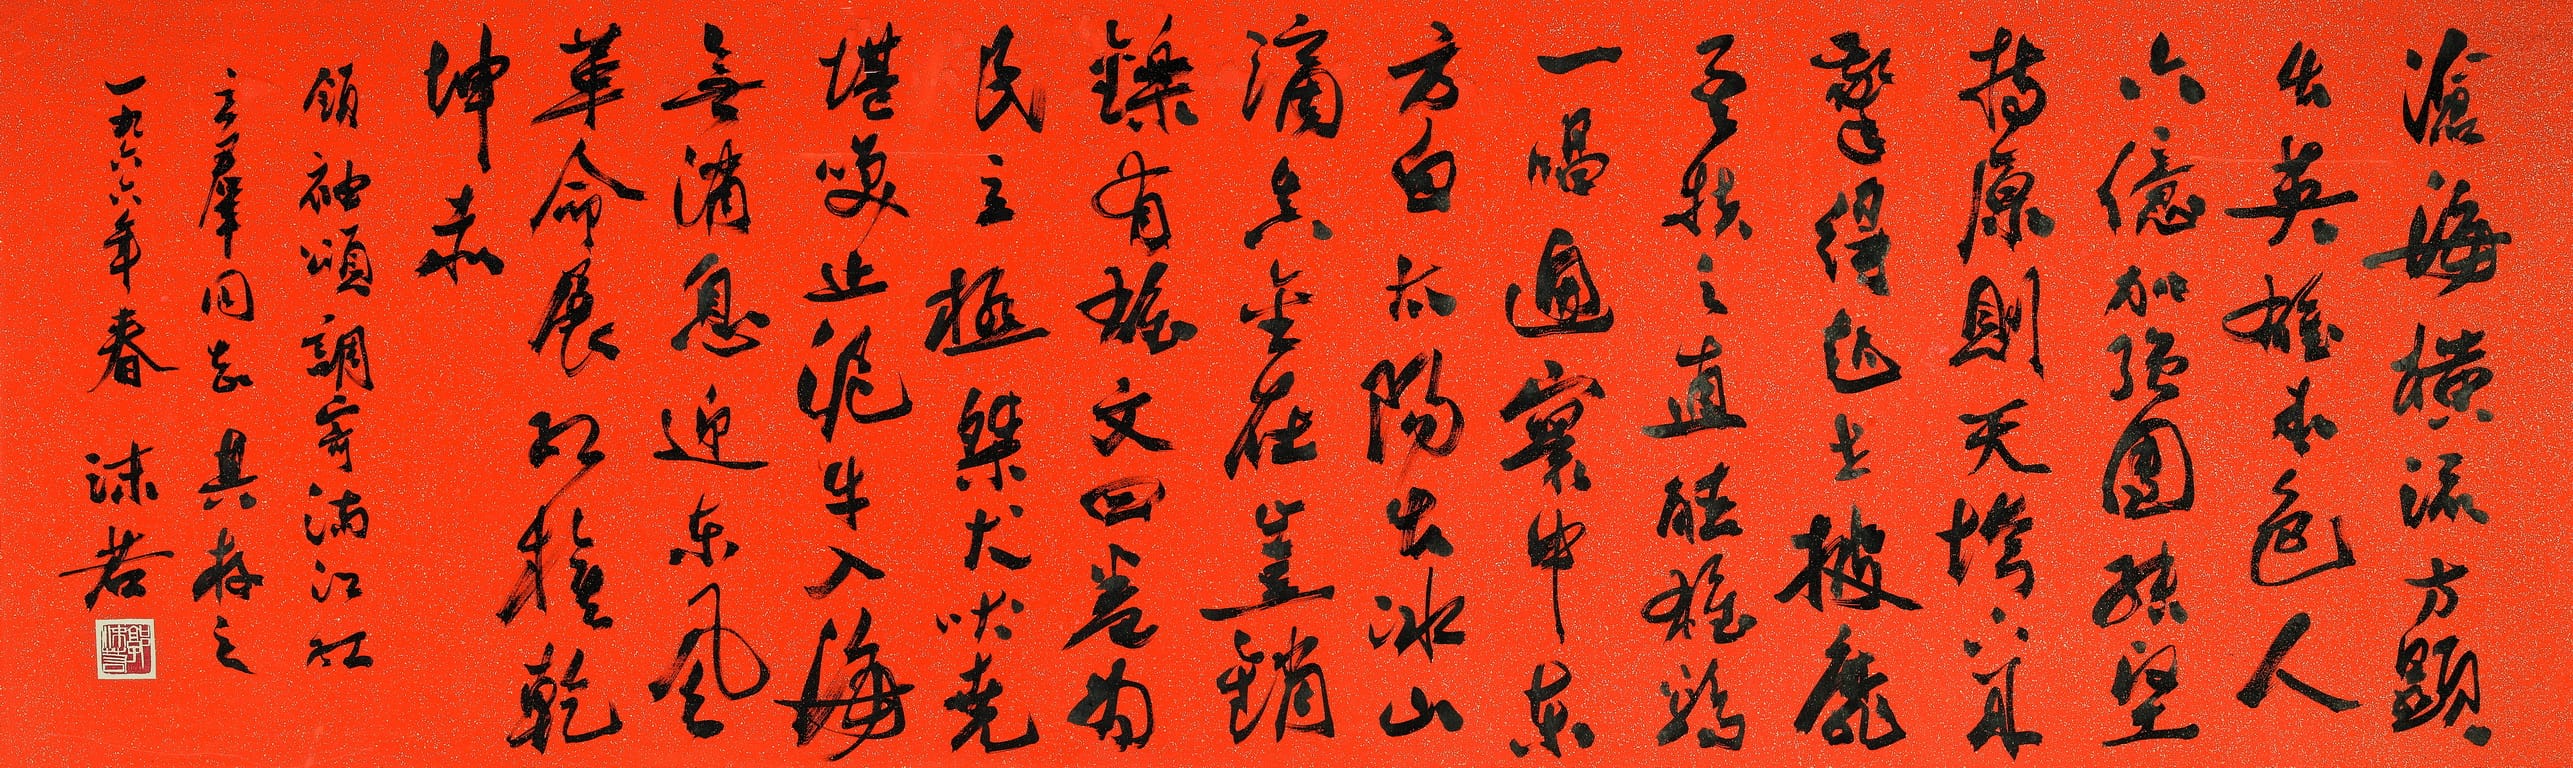 滄海橫流方顯
出英雄本色人
六億加強團結堅
持原則天垮下來
擎得起世披靡
吾扶之直聽雄鷄
一唱遍寰中東
方白太陽出冰山
滴真金在豈銷
鑠有雄文四卷爲
民立極桀犬吠堯
堪笑止泥牛入海
無消息迎東風
革命展紅旗乾
坤赤
領袖頌調寄滿江紅
立羣同志具存之
一九六六年春 沫若
郭沫若